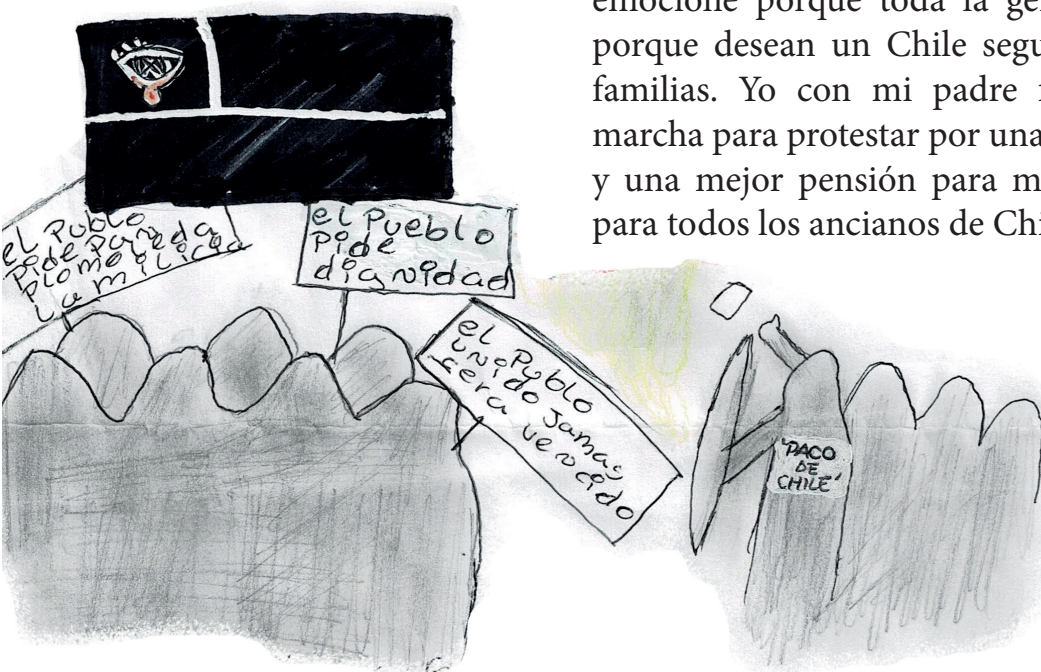 emocione porque toda la ge
porque desean un Chile segu
familias. Yo con mi padre
marcha para protestar por una
y una mejor pensión para m
para todos los ancianos de Chi
el Publo
Pide Pan
Plomo leda
La milicia
el Pueblo
Pide
dignidad
el Publo
unido Jamas
cera vencido
'PACO
DE
CHILE'